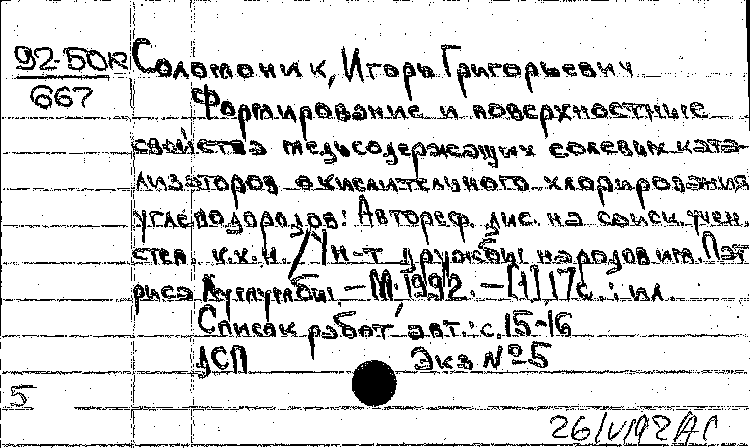 92-50к Соломоник, Игорь Григорьевич
667 Формирование и поверхностные
свойства медьсодержащих солевых ката-
лизаторов окислительного хлорирования
углеводородов: Автореф. дис. на соиск. учен.
степ. к.х.н. / Ун-т дружбы народов им. Пат-
риса Лумумбы. – М., 1992. – [1], 17с. : ил.
Список работ авт.: с. 15-16
ДСП Экз № 5
5